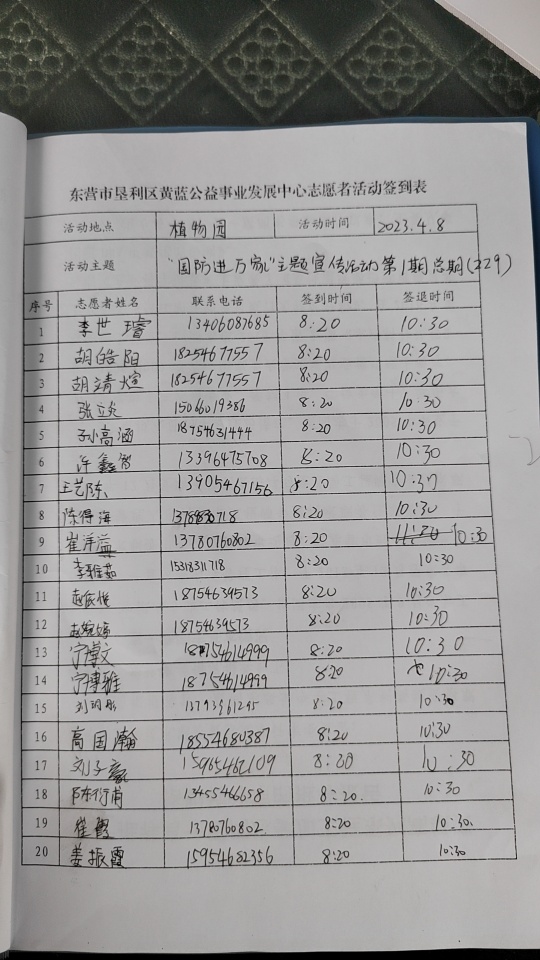 东营市垦利区黄蓝公益事业发展中心志愿者活动签到表
活动地点 植物园 活动时间 2023.4.8
活动主题 "国防进万家"主题宣传活动第1期总期(229)
序号 志愿者姓名 联系电话 签到时间 签退时间
1 李世璿 13406087685 8:20 10:30
2 胡皓阳 18254677557 8:20 10:30
3 胡靖煊 18254677557 8:20 10:30
4 张立炎 15066019386 8:20 10:30
5 孙高涵 18754631444 8:20 10:30
6 许鑫智 13396475708 8:20 10:30
7 王艺陈 13905467156 8:20 10:30
8 陈得海 8:20 10:30
9 崔洋溢 13780760802 8:20 10:30
10 李雅茹 15318311718 8:20 10:30
11 18754634573 8:20 10:30
12 18754634573 8:20 10:30
13 宁博文 18754614999 8:20 10:30
14 宁博雅 18754614999 8:20 10:30
15 刘玥彤 13793961245 8:20 10:30
16 高国瀚 18554680387 8:20 10:30
17 刘子豪 15965462109 8:20 10:30
18 陈衍甫 13455466658 8:20. 10:30
19 崔霞 13780760802 8:20 10:30.
20 姜振霞 15954682356 8:20 10:30